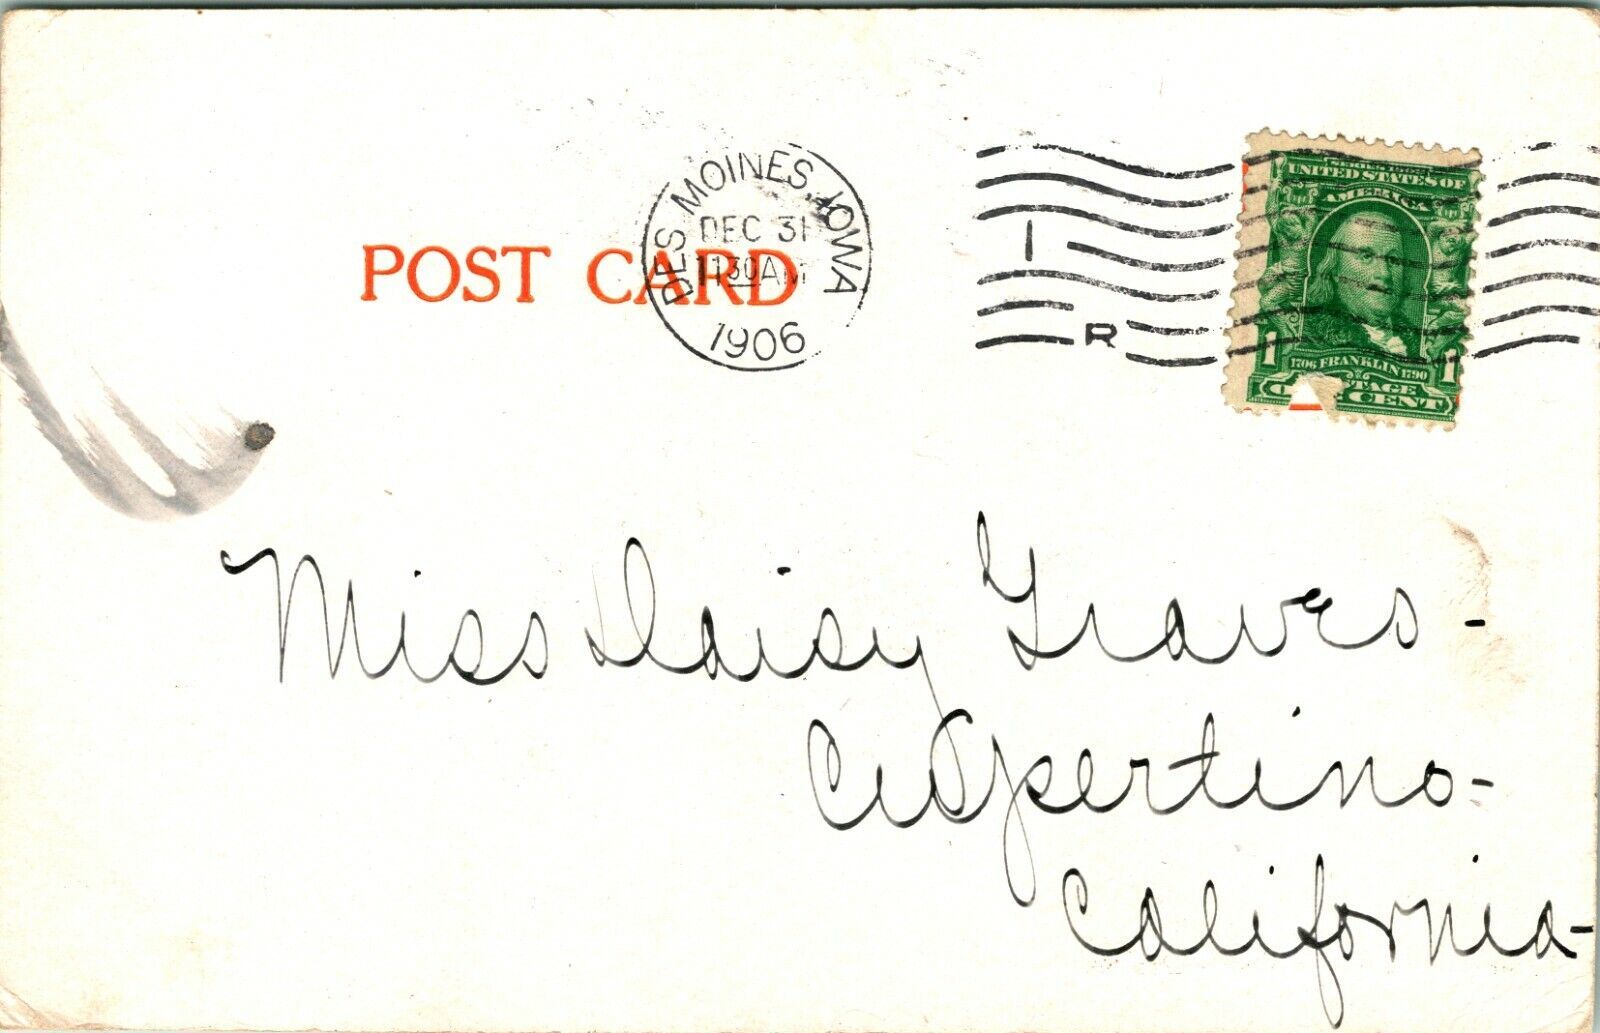 DES MOINES, IOWA
DEC 31
1130AM
1906
POST CARD
1
R
SERIES 1902
UNITED STATES OF
AMERICA
1 1706 FRANKLIN 1790 1
POSTAGE
CENT
Miss Daisy Graves -
Cupertino -
California -